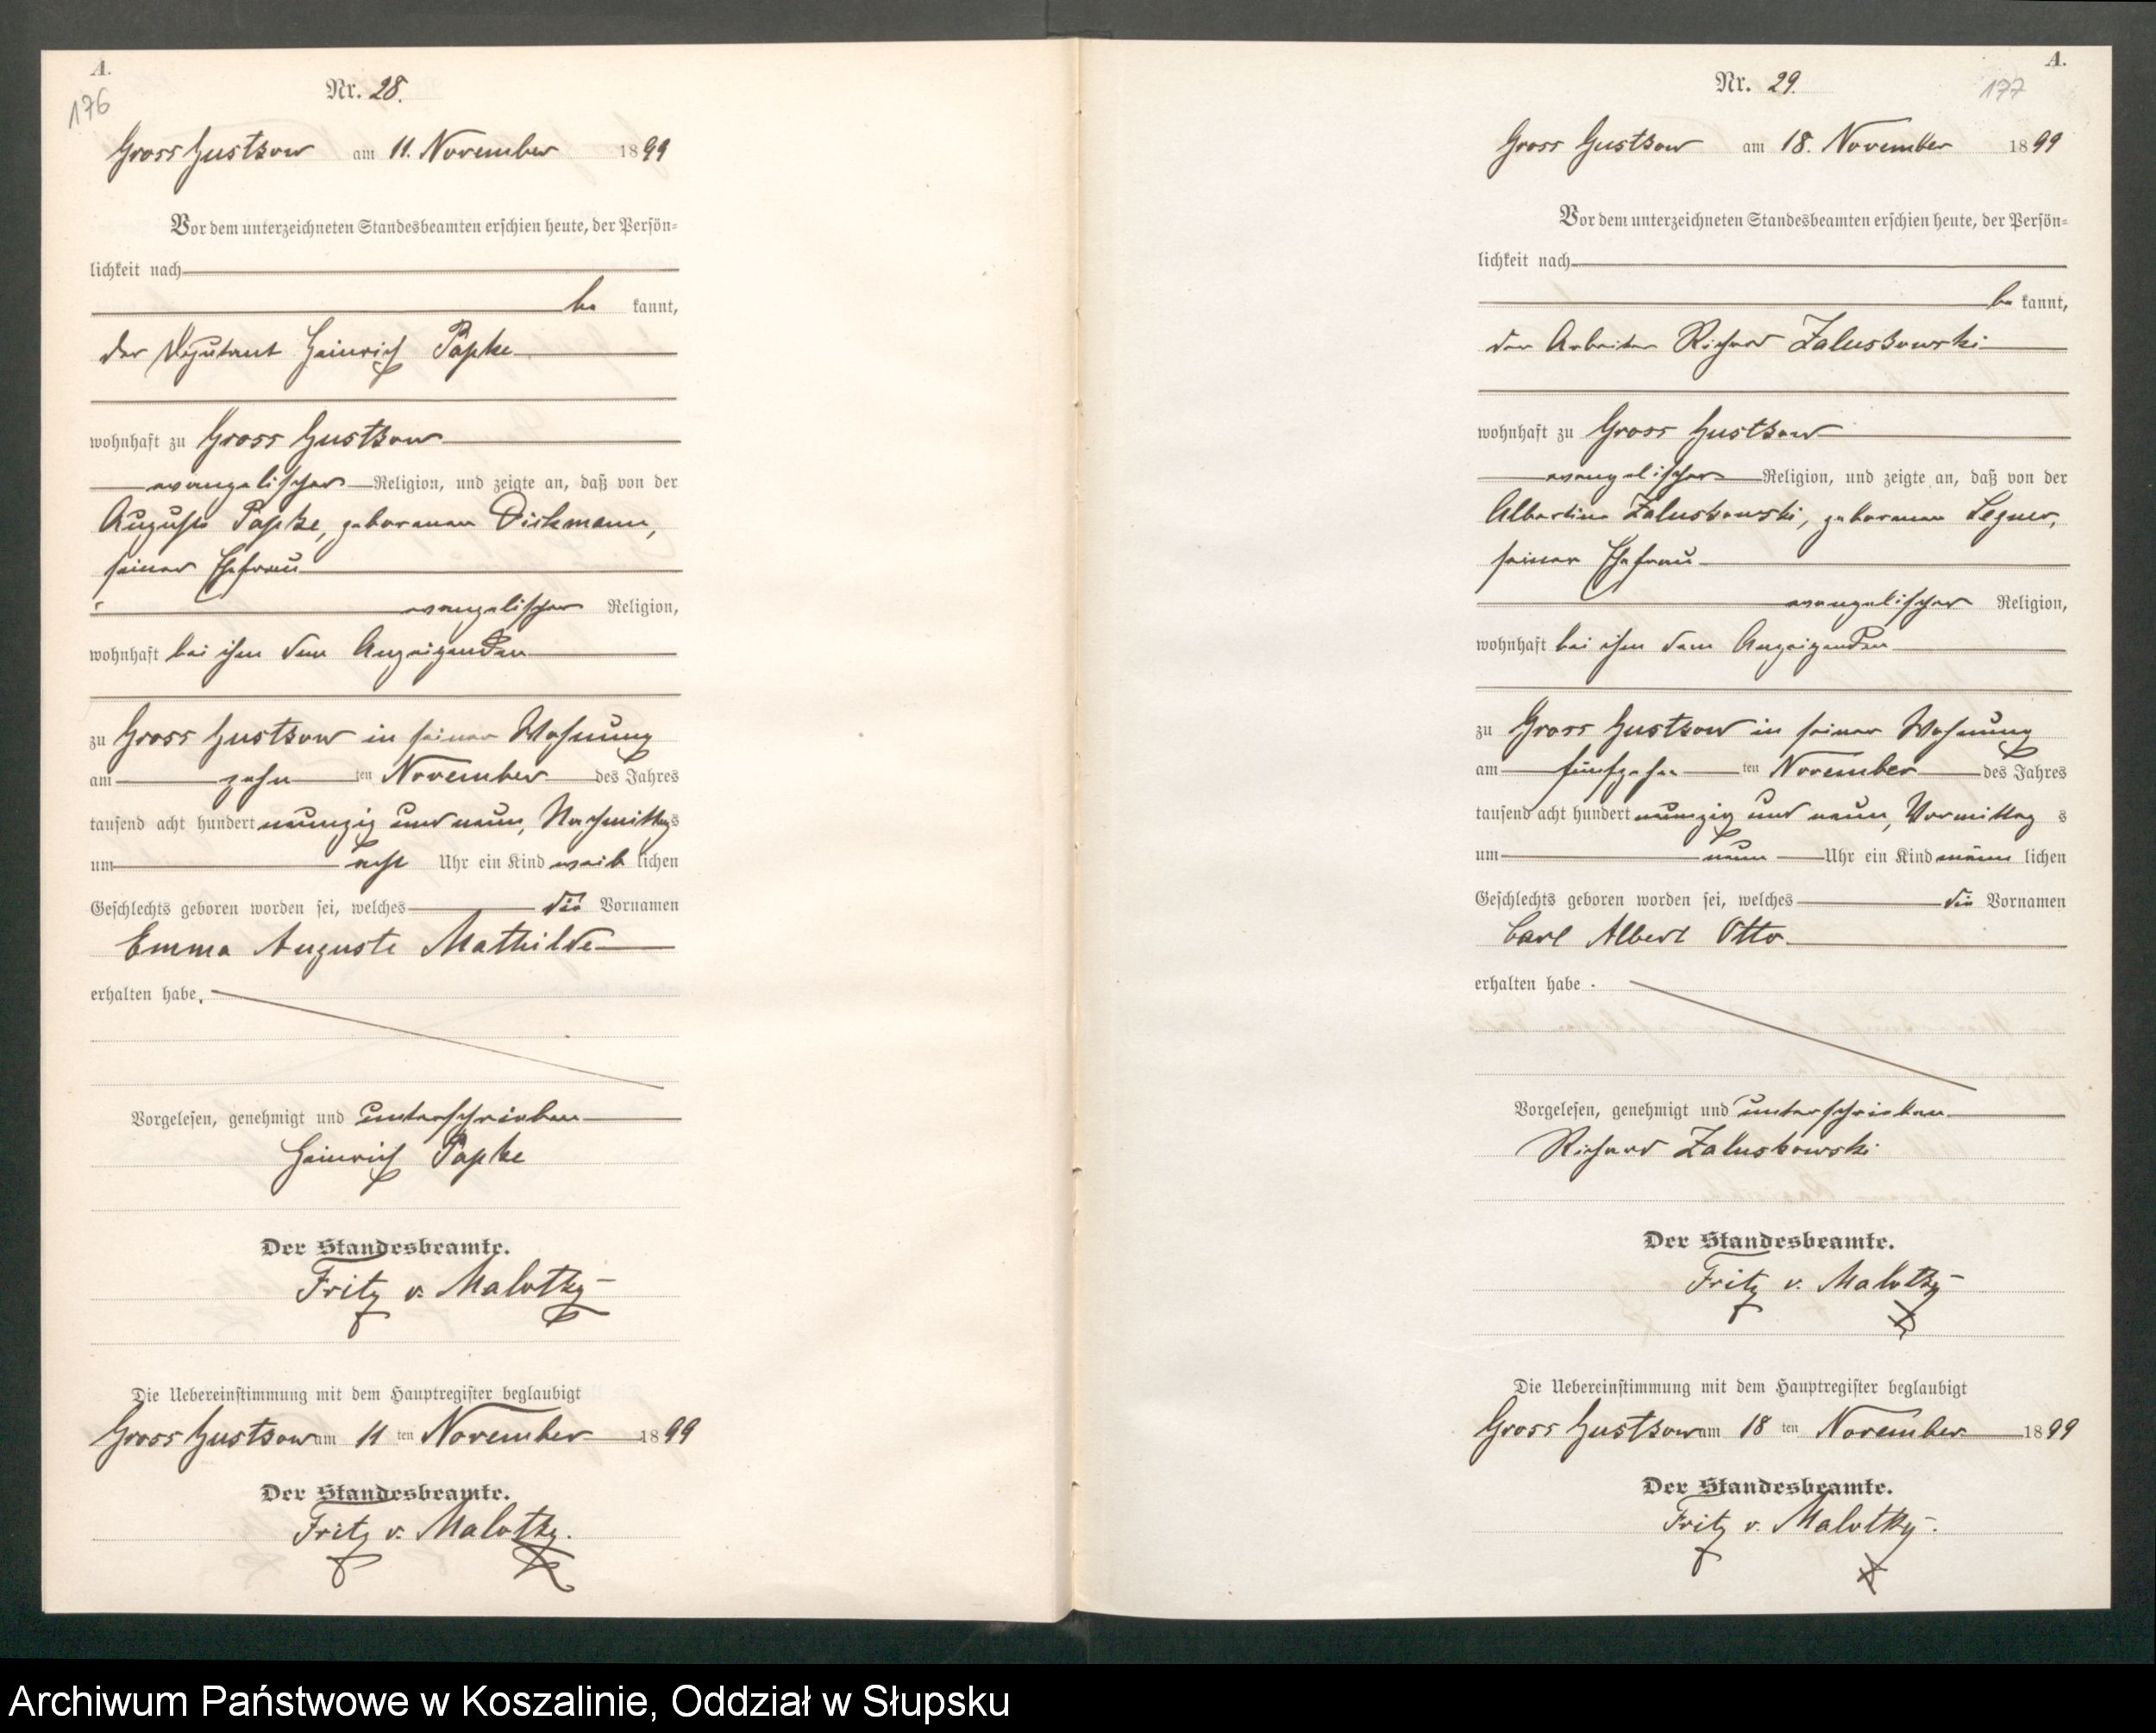 A.
176
Nr. 28.
Gross Gustkow am 11. November 1899
Vor dem unterzeichneten Standesbeamten erschien heute, der Persön-
lichkeit nach
be kannt,
der Deputant Heinrich Papke
wohnhaft zu Gross Gustkow
evangelischer Religion, und zeigte an, daß von der
Auguste Papke, geborenen Dickmann,
seiner Ehefrau
evangelischer Religion,
wohnhaft bei ihm dem Anzeigenden
zu Gross Gustkow in seiner Wohnung
am zehn ten November des Jahres
tausend acht hundert neunzig und neun, Nachmittags
um acht Uhr ein Kind weib lichen
Geschlechts geboren worden sei, welches die Vornamen
Emma Auguste Mathilde
erhalten habe.
Vorgelesen, genehmigt und unterschrieben
Heinrich Papke
Der Standesbeamte.
Fritz v. Malotky
Die Uebereinstimmung mit dem Hauptregister beglaubigt
Gross Gustkow am 11 ten November 1899
Der Standesbeamte.
Fritz v. Malotky.
A.
177
Nr. 29.
Gross Gustkow am 18. November 1899
Vor dem unterzeichneten Standesbeamten erschien heute, der Persön-
lichkeit nach
be kannt,
der Arbeiter Richard Zaluskowski
wohnhaft zu Gross Gustkow
evangelischer Religion, und zeigte an, daß von der
Albertine Zaluskowski, geborenen Legner,
seiner Ehefrau
evangelischer Religion,
wohnhaft bei ihm dem Anzeigenden
zu Gross Gustkow in seiner Wohnung
am fünfzehn ten November des Jahres
tausend acht hundert neunzig und neun, Vormittag s
um neun Uhr ein Kind männ lichen
Geschlechts geboren worden sei, welches die Vornamen
Carl Albert Otto
erhalten habe.
Vorgelesen, genehmigt und unterschrieben
Richard Zaluskowski
Der Standesbeamte.
Fritz v. Malotky
Die Uebereinstimmung mit dem Hauptregister beglaubigt
Gross Gustkow am 18 ten November 1899
Der Standesbeamte.
Fritz v. Malotky.
Archiwum Państwowe w Koszalinie, Oddział w Słupsku